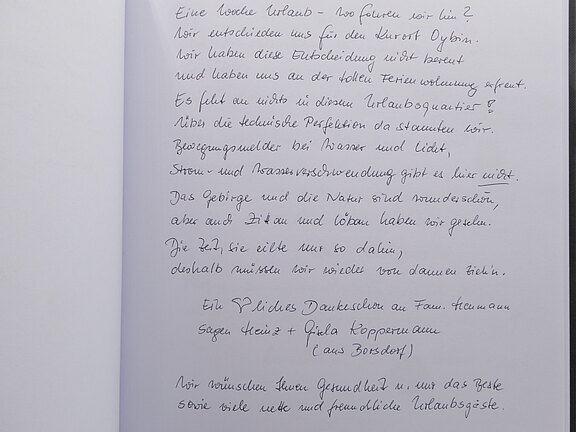 Eine Woche Urlaub - wo fahren wir hin?
Wir entschieden uns für den Kurort Oybin.
Wir haben diese Entscheidung nicht bereut
und haben uns an der tollen Ferienwohnung erfreut.
Es fehlt an nichts in diesem Urlaubsquartier!
Über die technische Perfektion da staunten wir.
Bewegungsmelder bei Wasser und Licht,
Strom- und Wasserverschwendung gibt es hier nicht.
Das Gebirge und die Natur sind wunderschön,
aber auch Zittau und Löbau haben wir gesehn.
Die Zeit, sie eilte nur so dahin,
deshalb müssen wir wieder von dannen zieh'n.
Ein ♡liches Dankeschön an Fam.
sagen Heinz + Gisela Koppermann
(aus Borsdorf)
Wir wünschen Ihnen Gesundheit u. nur das Beste
sowie viele nette und freundliche Urlaubsgäste.